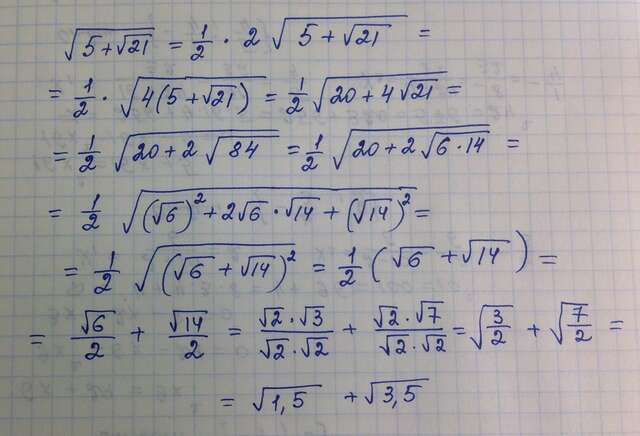 √(5+√21) = 1/2 · 2 √(5+√21) =
= 1/2 · √(4(5+√21)) = 1/2 √(20+4√21) =
= 1/2 √(20+2√84) = 1/2 √(20+2√(6·14)) =
= 1/2 √((√6)²+2√6·√14+(√14)²) =
= 1/2 √((√6+√14)²) = 1/2 (√6+√14) =
= √6/2 + √14/2 = (√2·√3)/(√2·√2) + (√2·√7)/(√2·√2) = √(3/2) + √(7/2) =
= √1,5 + √3,5